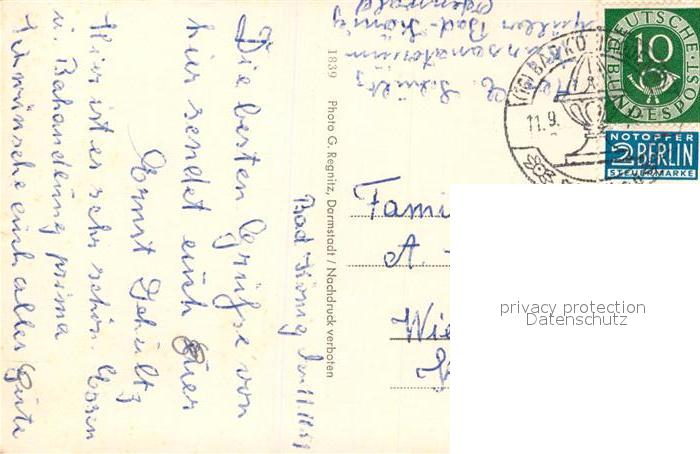 Bad König den 11.9.53
Die besten Grüße von
hier sendet euch
Ernst Schultz
Hier ist es sehr schön. Essen
u. Behandlung prima
Ich wünsche euch alles Gute
1839 Photo G. Regnitz, Darmstadt / Nachdruck verboten
Schultz
Sanatorium
Bad-König
Odenwald
BAD KÖ
11.9.
DEUTSCHE
BUNDESPOST
10
NOTOPFER
2 BERLIN
STEUERMARKE
Fami
A.
Wie
privacy protection
Datenschutz